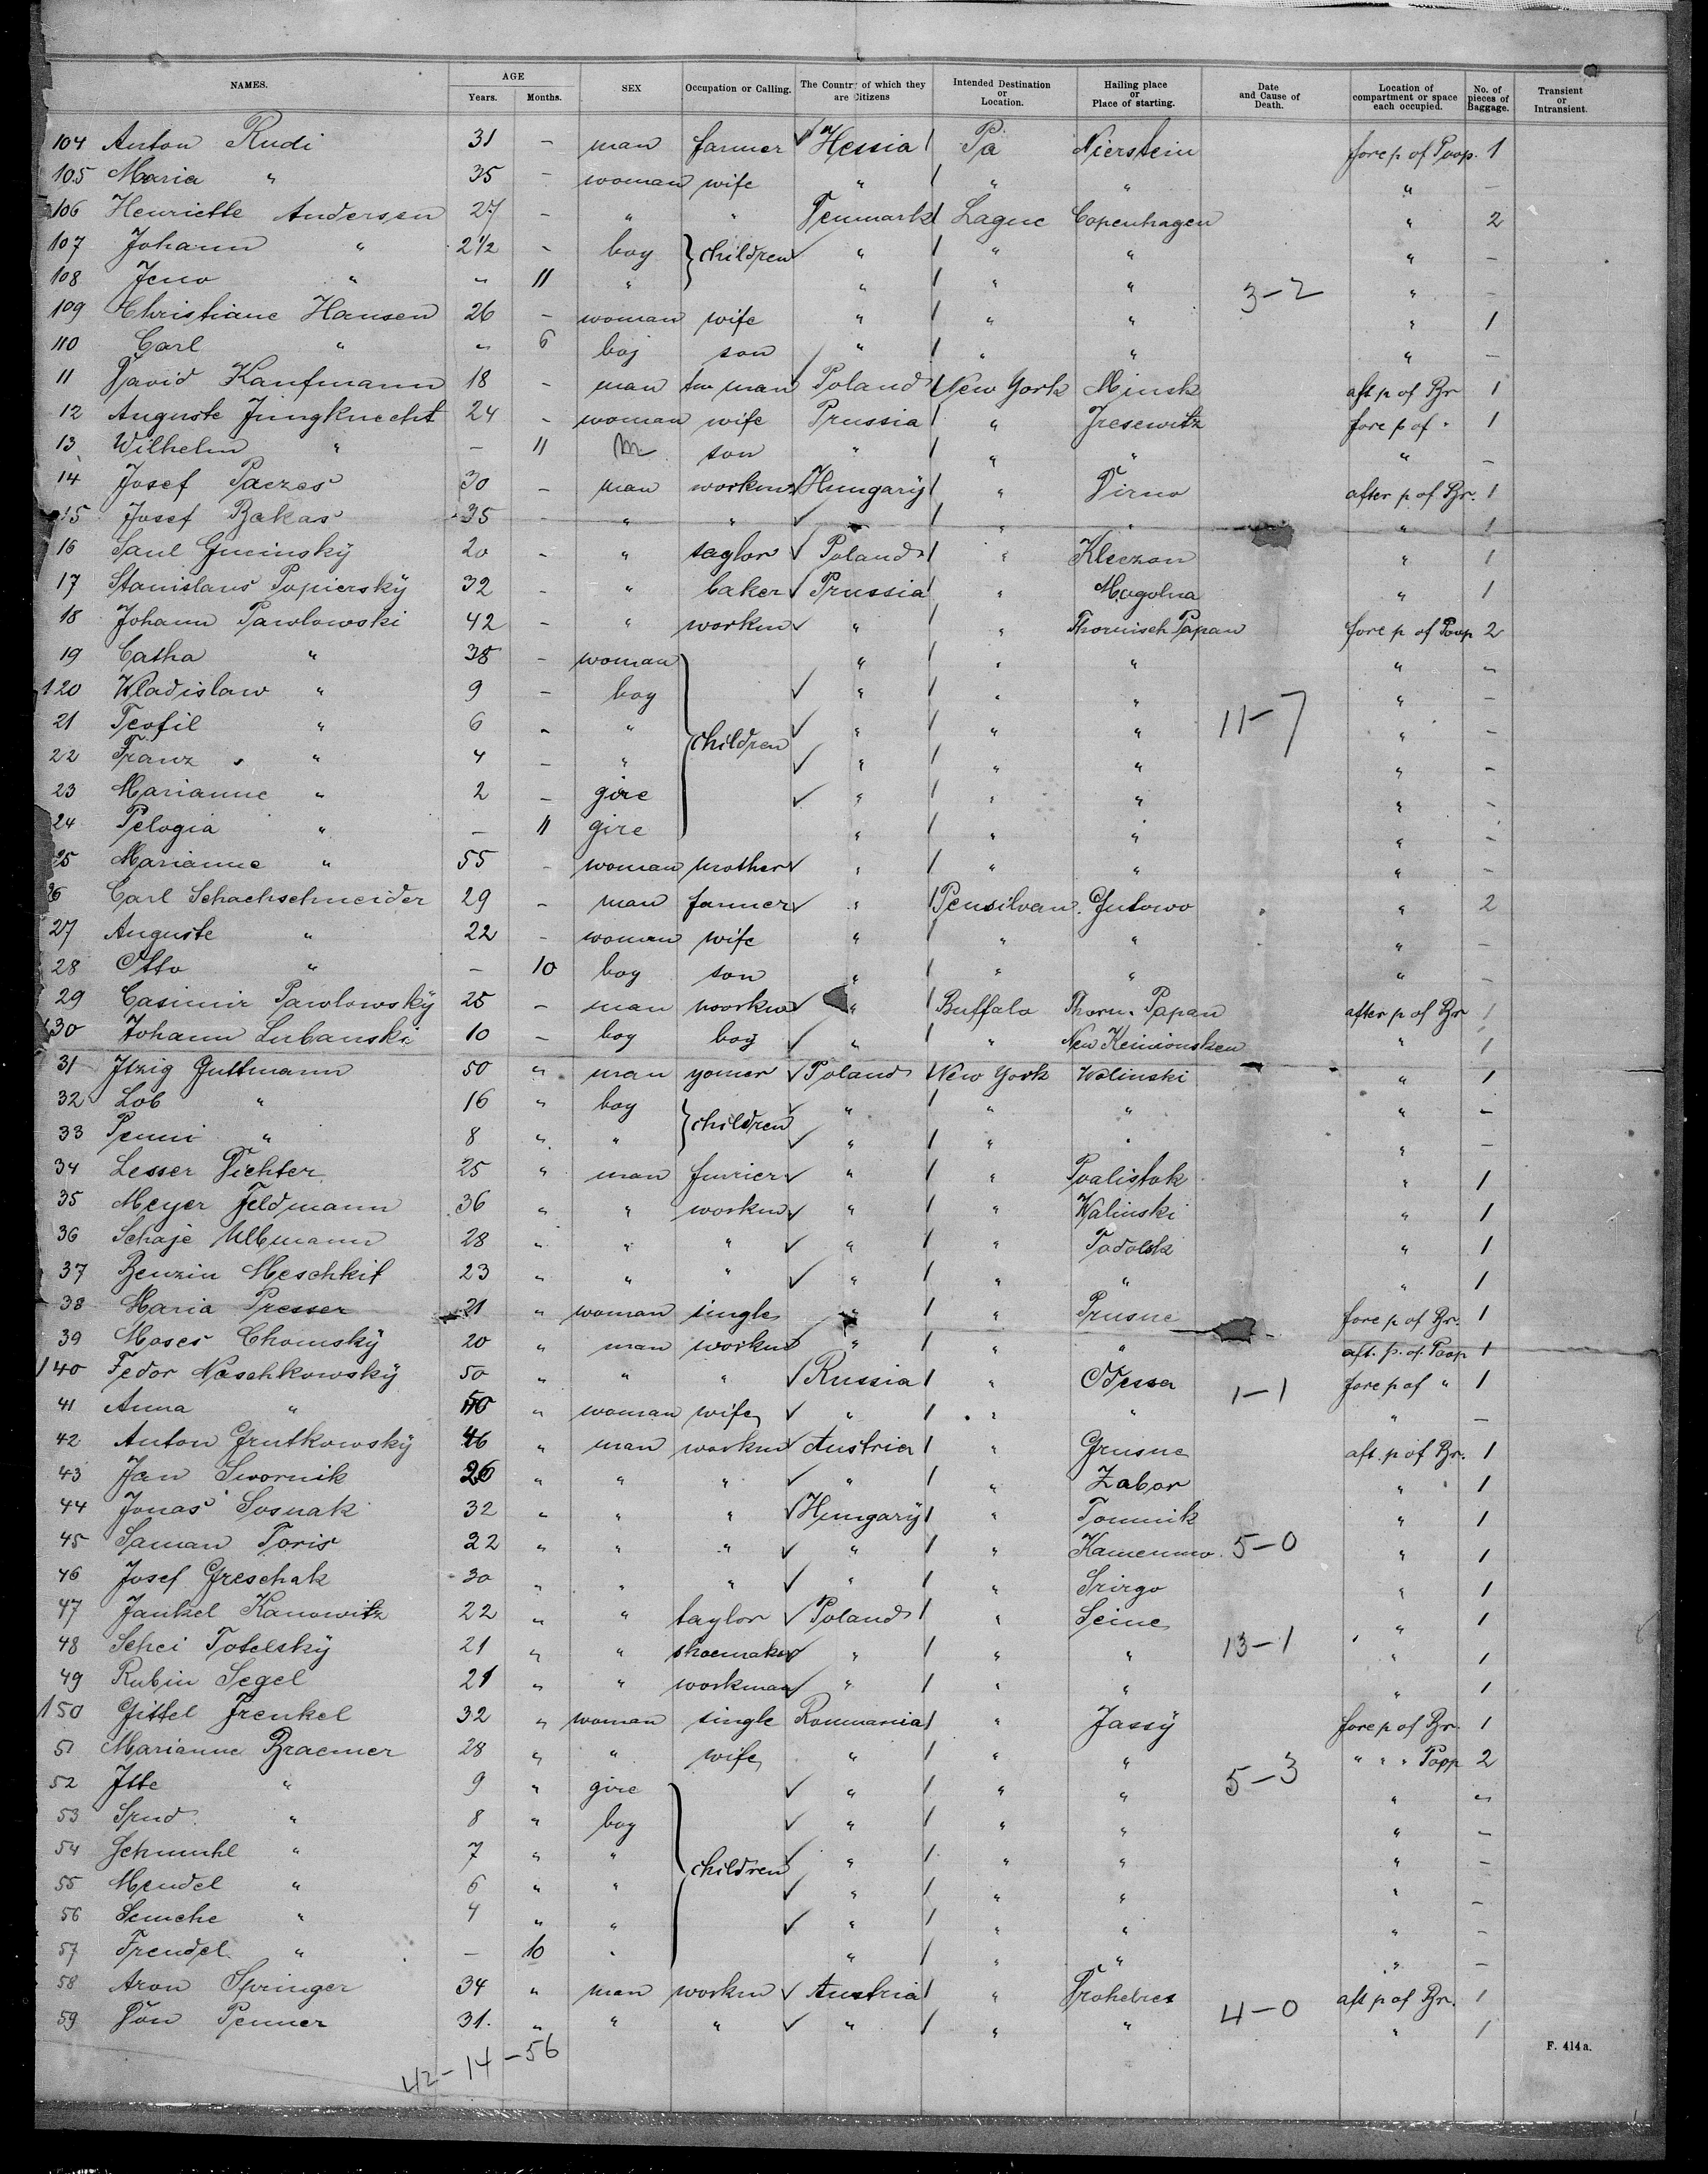 NAMES. AGE Years. Months. SEX Occupation or Calling. The Country of which they are Citizens Intended Destination or Location. Hailing place or Place of starting. Date and Cause of Death. Location of compartment or space each occupied. No. of pieces of Baggage. Transient or Intransient.
104 Anton Rudi 31 - man farmer Hessia Pa Nierstein fore p of Poop. 1
105 Maria " 35 - woman wife " " " " -
106 Henriette Andersen 27 - " " Denmark Copenhagen " 2
107 Johann " 2 1/2 - boy children " " " " -
108 Jeno " " 11 " " " " 3-2 " -
109 Christiane Hansen 26 - woman wife " " " " 1
110 Carl " " 6 boy son " " " " -
11 David Kaufmann 18 - man man Poland New York Minsk aft p of Br 1
12 Auguste Jungknecht 24 - woman wife Prussia " Jresewitz fore p of " 1
13 Wilhelm " - 11 m son " " " " -
14 Josef Paczes 30 - man workm Hungary " Dirno after p of Br. 1
15 Josef Bakas 35 - " " " " " 1
16 Saul Gucinsky 20 - " taylor Poland " Kleczan " 1
17 Stanislaus Popiersky 32 - " baker Prussia " Mogolna " 1
18 Johann Pawlowski 42 - " workm " " Thornisch Papau fore p of Poop 2
19 Catha " 38 - woman " " " " "
120 Wladislaw " 9 - boy " " " " -
21 Teofil " 6 - " children " " " 11-7 " -
22 Franz " 4 - " " " " " -
23 Marianne " 2 - gire " " " " -
24 Pelogia " - 11 gire " " " " -
25 Marianne " 55 - woman mother " " " " -
26 Carl Schachschneider 29 - man farmer " Pensilvan. Gutowo " 2
27 Auguste " 22 - woman wife " " " " -
28 Otto " - 10 boy son " " " " -
29 Casimir Pawlowsky 25 - man workm " Buffalo Thorn. Papau after p of Br 1
130 Johann Lubanski 10 - boy boy " " New " 1
31 Itzig Guttmann 50 " man Poland New York Walinski " 1
32 Lob " 16 " boy children " " " " -
33 Penni " 8 " " " " " " -
34 Lesser Dichter 25 " man furrier " " Poalistok " 1
35 Meyer Feldmann 36 " " workm " " Walinski " 1
36 Schaje Ullmann 28 " " " " " Podolsk " 1
37 Benzin Meschkit 23 " " " " " " " 1
38 Maria Presser 21 " woman single " " Prusne fore p of Br. 1
39 Moses Chomsky 20 " man workm " " " aft. p. of. Poop 1
140 Fedor Naschkowsky 50 " " " Russia " Odessa 1-1 fore p of " 1
41 Anna " 50 " woman wife " " " " -
42 Anton Grutkowsky 46 " man workm Austria " Grusne aft. p of Br. 1
43 Jan Swornik 26 " " " " " Zabor " 1
44 Jonas Sosnak 32 " " " Hungary " Tomnik " 1
45 Saman Toris 22 " " " " " 5-0 " 1
46 Josef Greschak 30 " " " " " Srirgo " 1
47 Jankel Kanowitz 22 " " taylor Poland " Seine " 1
48 Schei Totelsky 21 " " shoemaker " " " 13-1 " 1
49 Rubin Segel 21 " " workman " " " " 1
150 Gittel Frenkel 32 " woman single Roumania " Jassy fore p of Br. 1
51 Marianne Braemer 28 " " wife " " " " " " Poop 2
52 Itte " 9 " gire " " " 5-3 " "
53 Srud " 8 " boy " " " " -
54 Schmuhl " 7 " " children " " " " -
55 Mendel " 6 " " " " " " -
56 Semche " 4 " " " " " " -
57 Frendel " - 10 " " " " " -
58 Aron Springer 34 " man workm Austria " aft p of Br. 1
59 Don Penner 31. " " " " " " 4-0 " 1
42-14-56
F. 414 a.